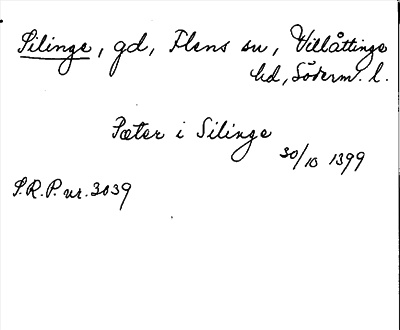 Silinge, gd, Flens sn, Villåttinge
hd, Söderm. l.
Pæter i Silinge
30/10 1399
S.R.P. nr. 3039